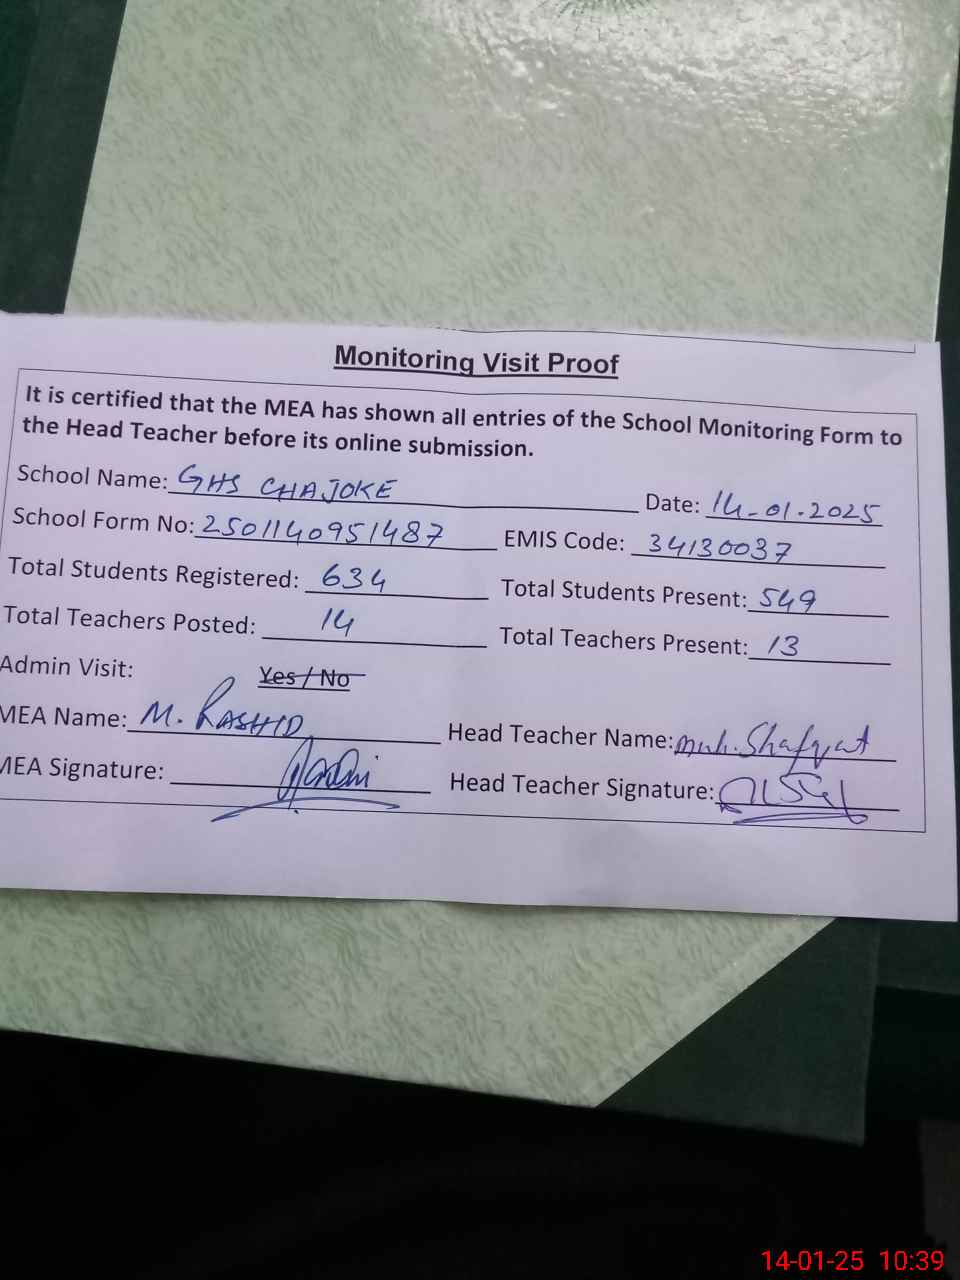 Monitoring Visit Proof
It is certified that the MEA has shown all entries of the School Monitoring Form to
the Head Teacher before its online submission.
School Name: GHS CHAJOKE Date: 14-01.2025
School Form No: 2501140951487 EMIS Code: 34130037
Total Students Registered: 634 Total Students Present: 549
Total Teachers Posted: 14 Total Teachers Present: 13
Admin Visit: Yes / No
MEA Name: M. RASHID Head Teacher Name: Muh. Shafqat
MEA Signature: Head Teacher Signature:
14-01-25 10:39